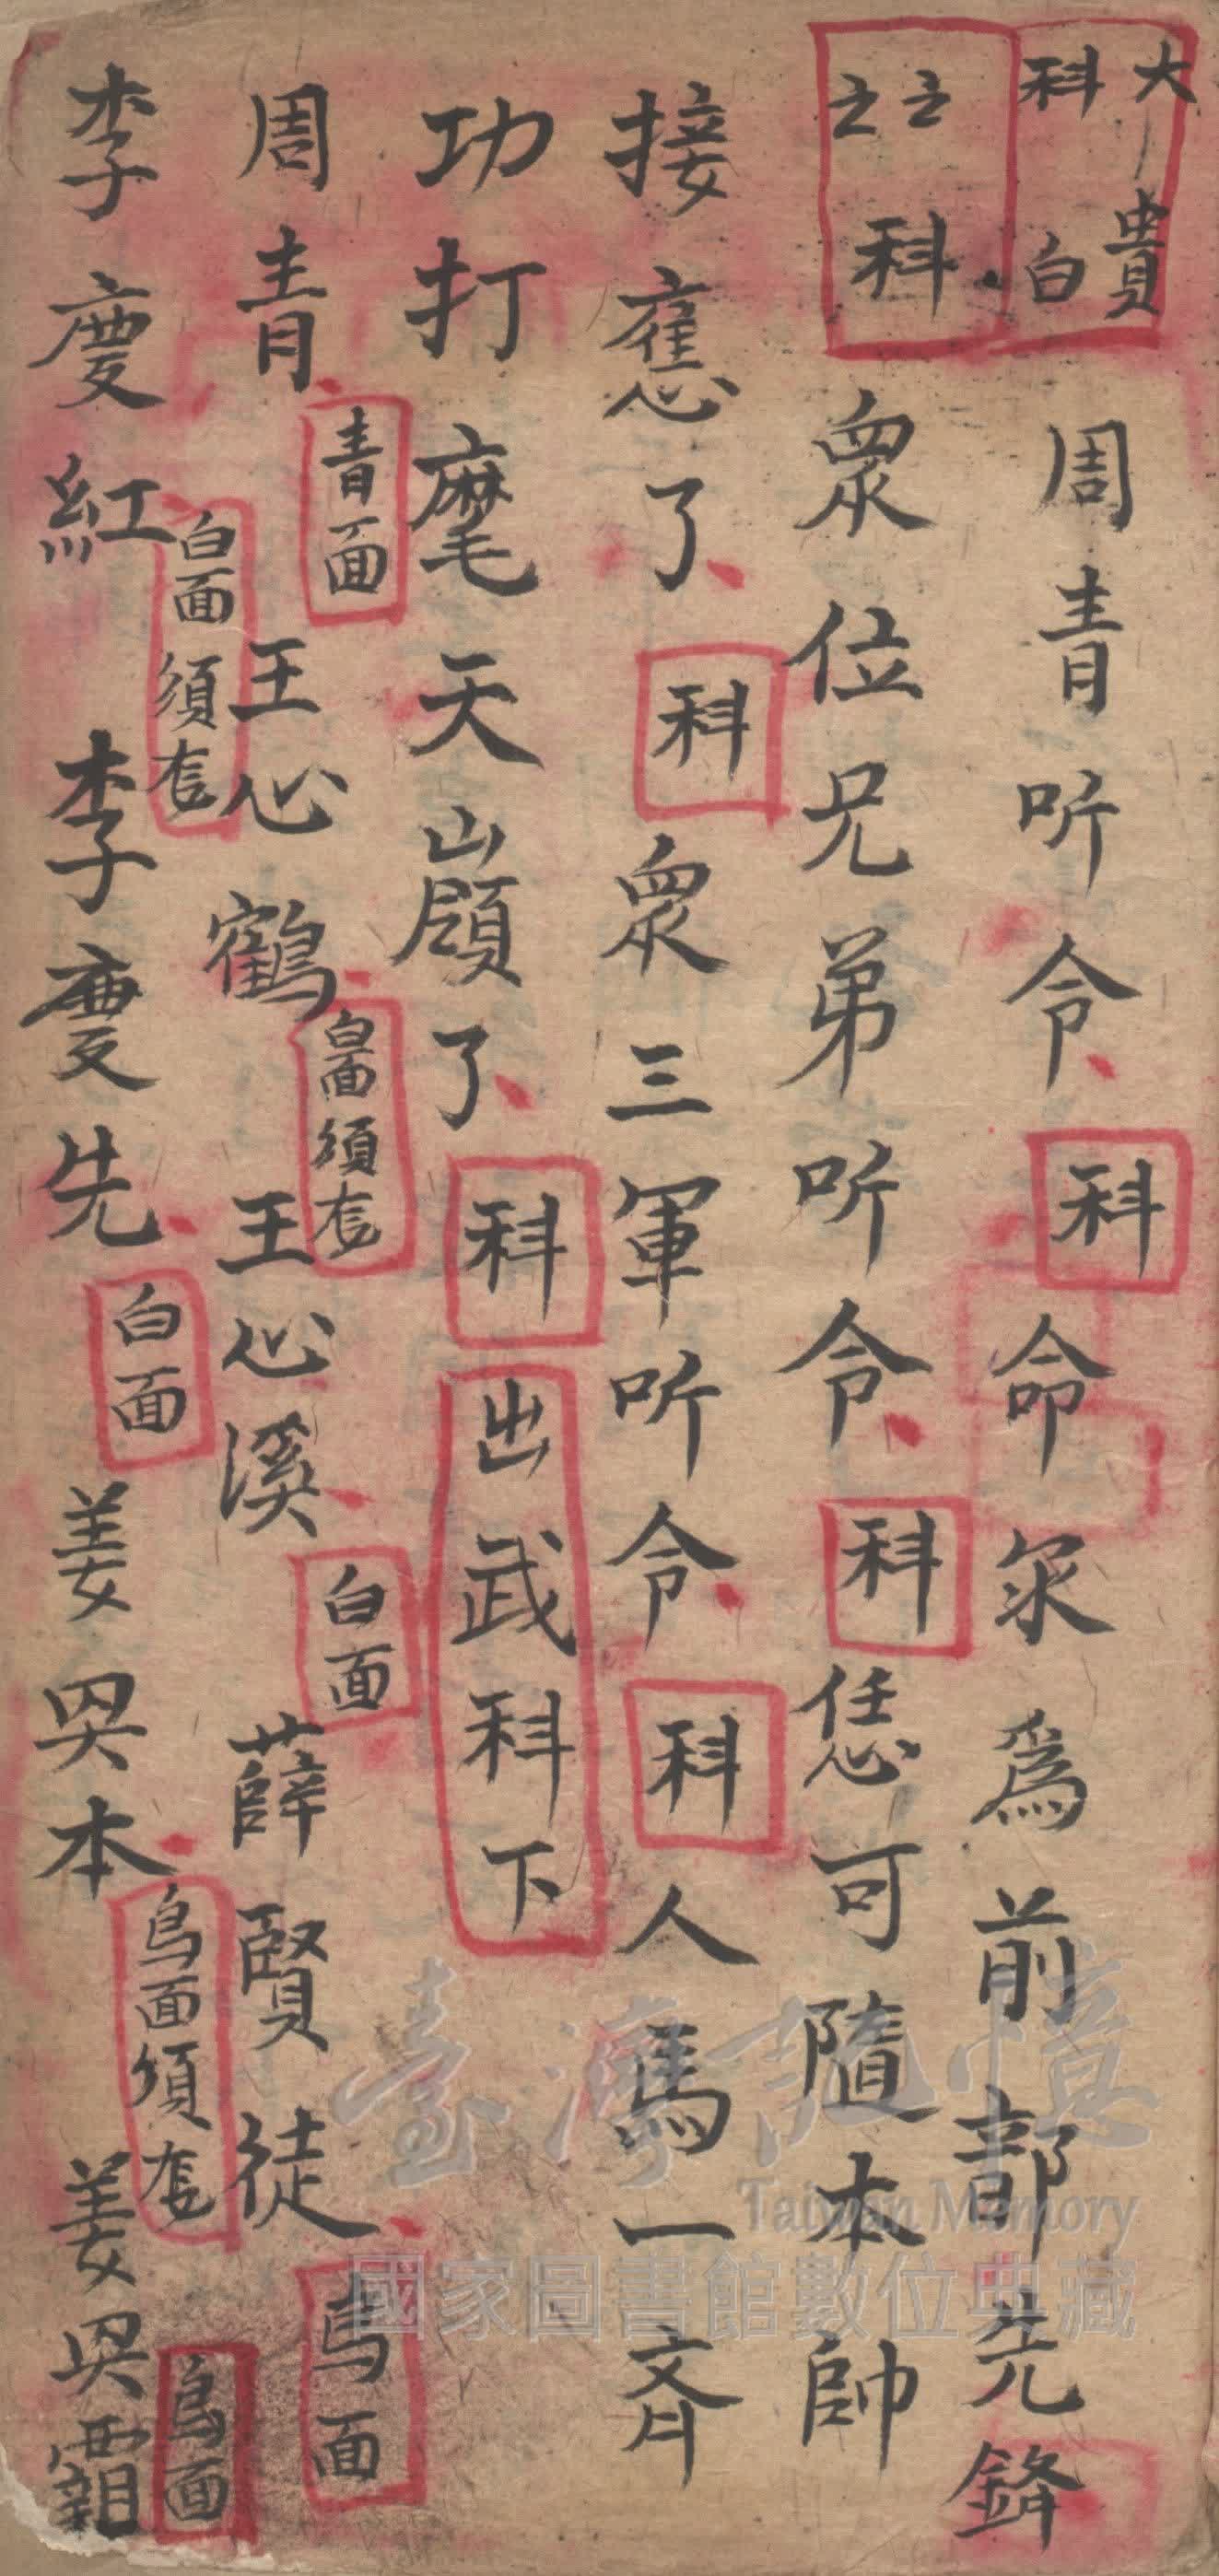 大貴
科白
周青听令
科
命汆為前部先鋒
之之
科
眾位兄弟听令
科
恁可隨本帥
接應了
科
眾三軍听令
科
人馬一齊
功打麾天嶺了
科
出武科下
周青
青面
王心鶴
白面須套
王心溪
白面
薛賢徒
烏面
李慶紅
白面須套
李慶先
白面
姜興本
烏面須套
姜興霸
烏面
臺灣記憶
Taiwan Memory
國家圖書館數位典藏